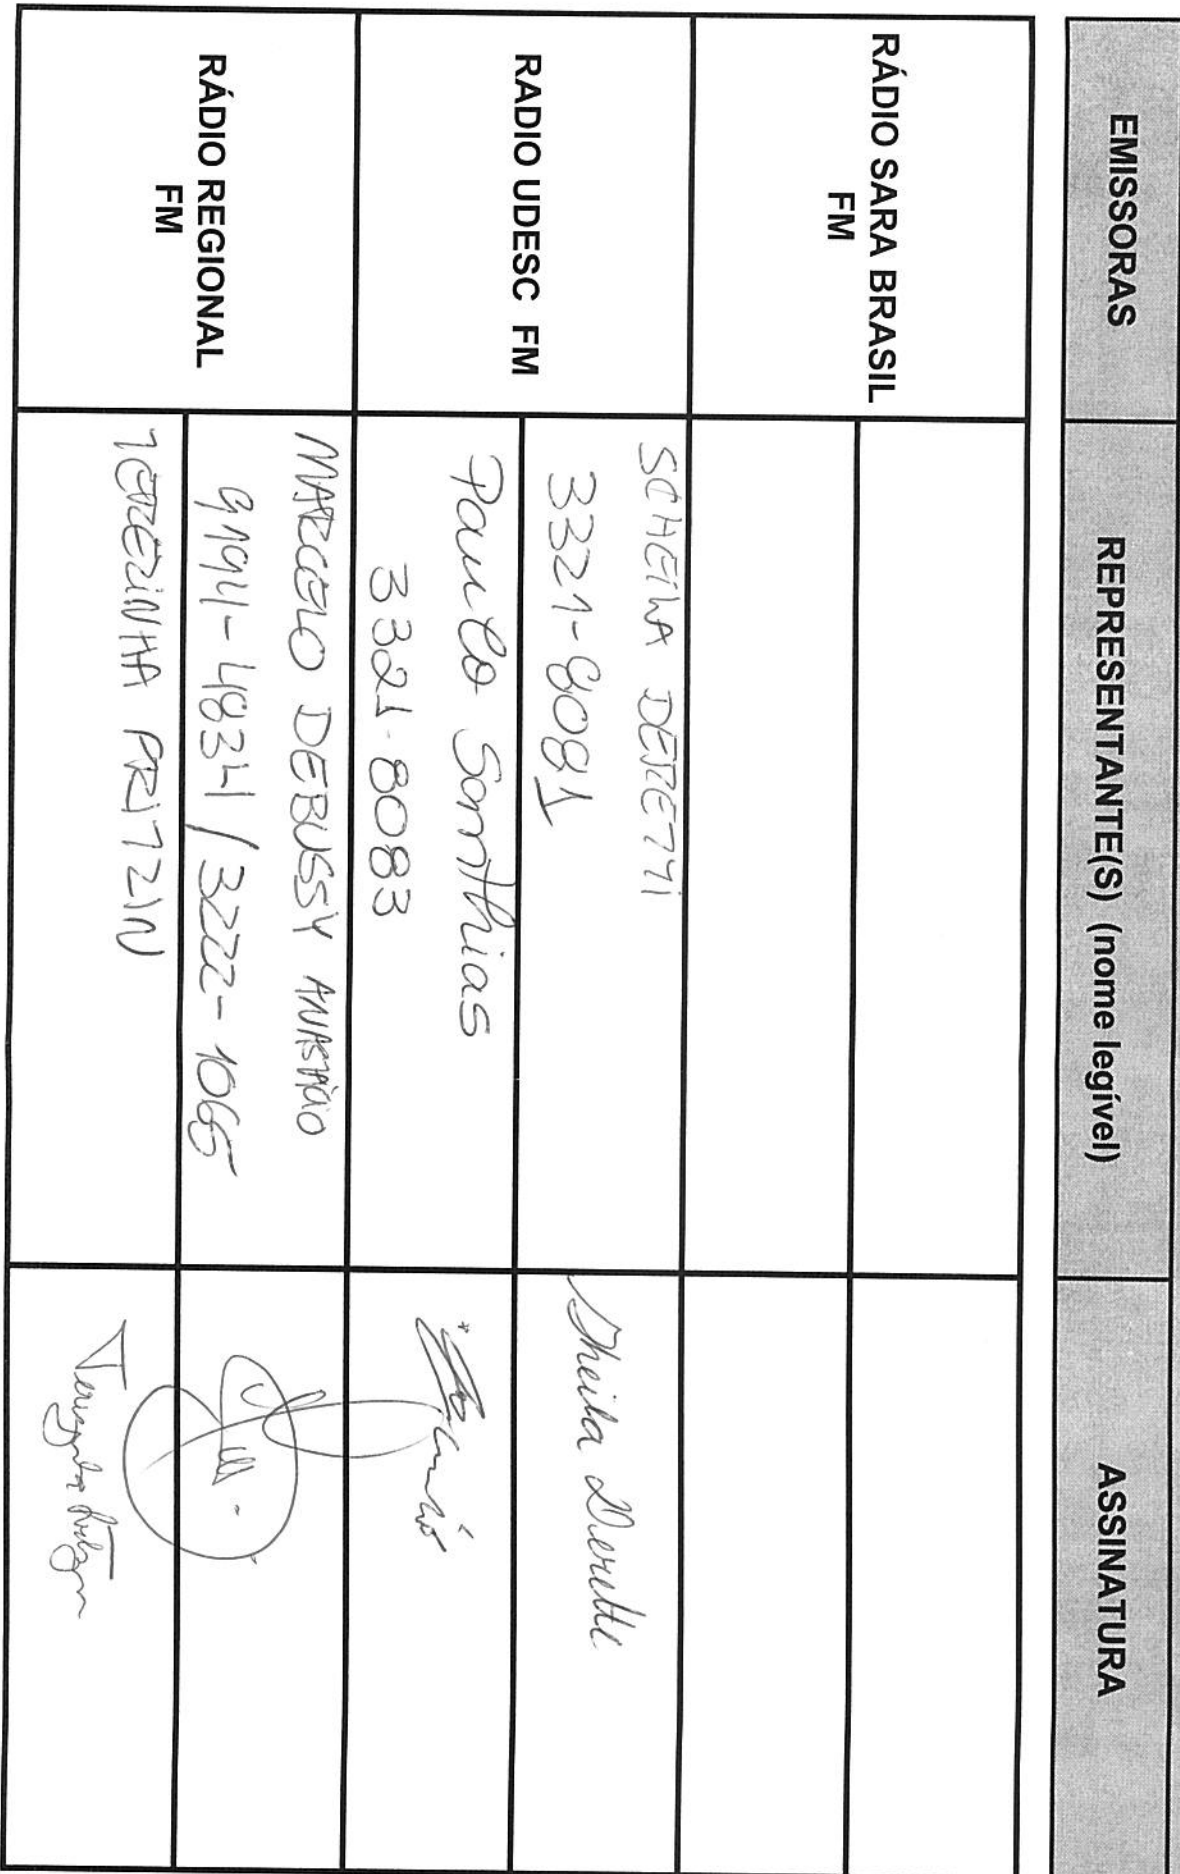 EMISSORAS
REPRESENTANTE(S) (nome legível)
ASSINATURA
RÁDIO SARA BRASIL
FM
RADIO UDESC FM
SCHEILA DERETTI
3321-8081
Sheila Deretti
Paulo Santhias
3321-8083
RÁDIO REGIONAL
FM
MARCELO DEBUSSY
9994-4834 / 3222-1065
TEREZINHA PRITZIN